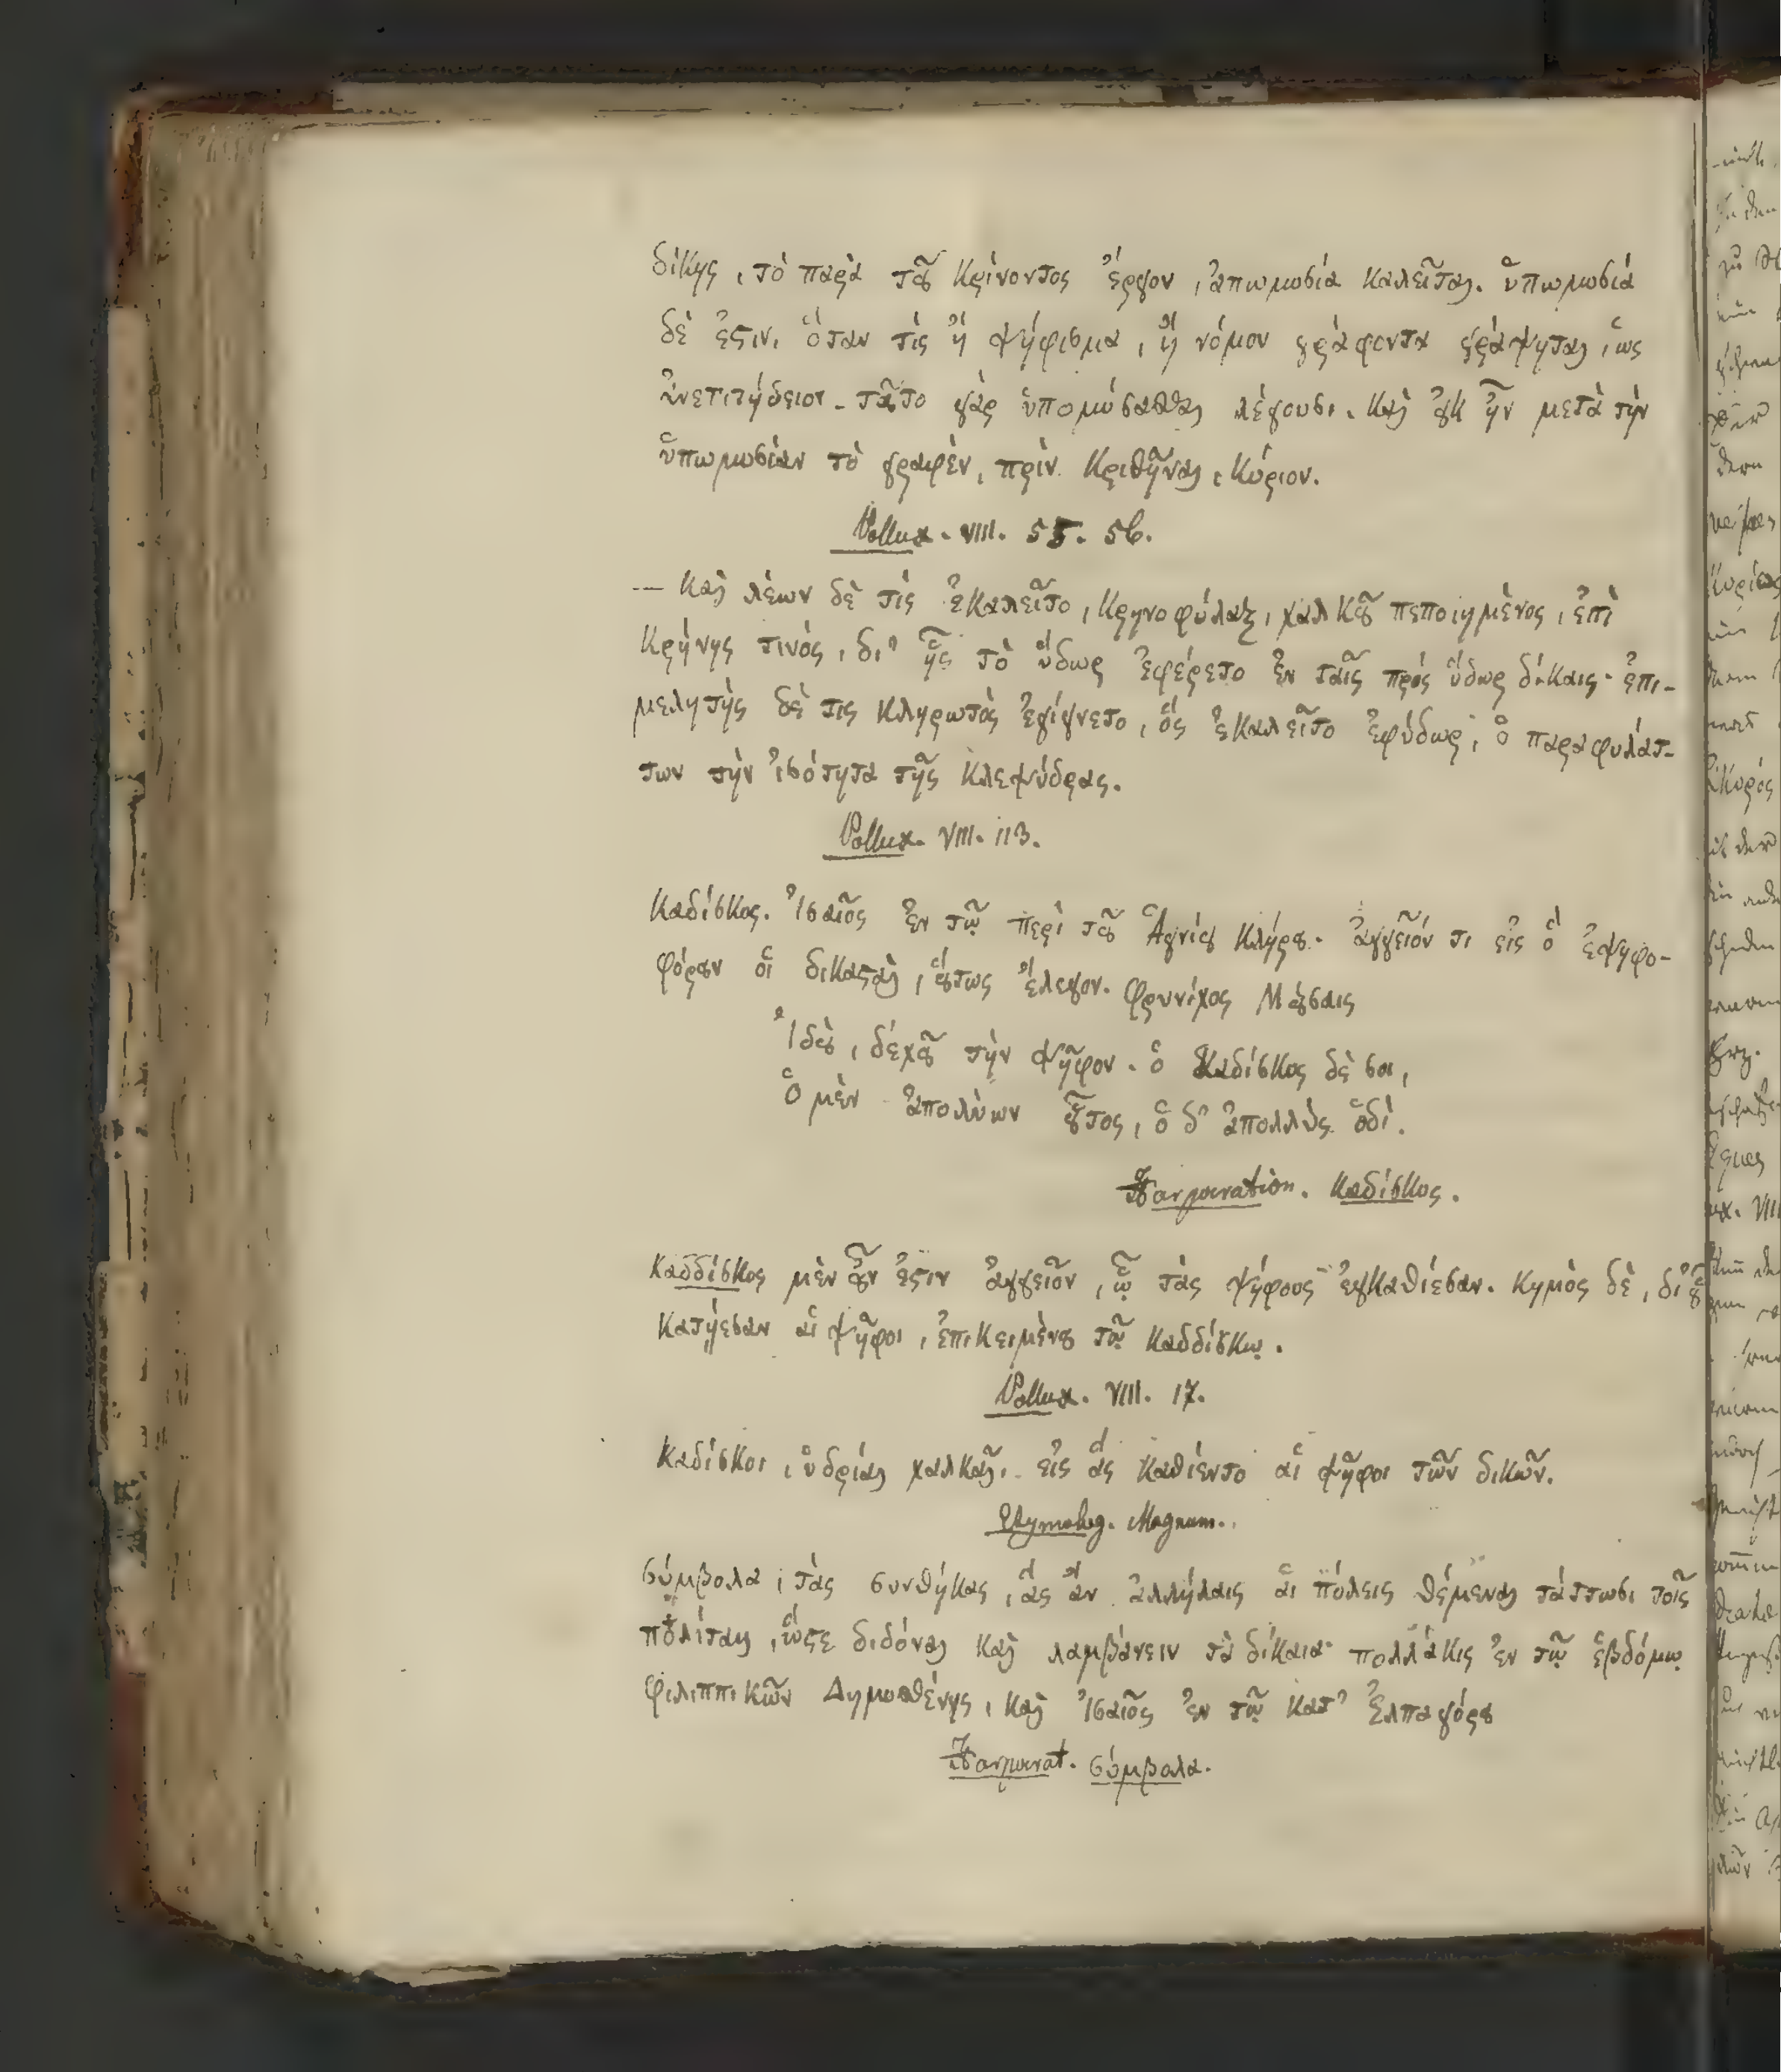 δίκης, τὸ παρὰ τοῦ κρίνοντος ἔργον, ἀπωμοσία καλεῖται. ὑπωμοσία
δὲ ἐστιν, ὅταν τὶς ἢ ψήφισμα, ἢ νόμον γράφοντα γράψηται, ὡς
ἀνεπιτήδειον - τοῦτο γὰρ ὑπομόσασθαι λέγουσι. καὶ οὐκ ἦν μετὰ τὴν
ὑπωμοσίαν τὸ γραφὲν, πρὶν κριθῆναι, κύριον.
Pollux. VIII. 55. 56.
— καὶ λέων δὲ τὶς ἐκαλεῖτο, κρηνοφύλαξ, χαλκοῦ πεποιημένος, ἐπὶ
κρήνης τινὸς, δι' ἧς τὸ ὕδωρ ἐφέρετο ἐν ταῖς πρὸς ὕδωρ δίκαις· ἐπι-
μελητὴς δὲ τις κληρωτὸς ἐγίγνετο, ὅς ἐκαλεῖτο ἐφύδωρ, ὁ παραφυλάτ-
των τὴν ἰσότητα τῆς κλεψύδρας.
Pollux. VIII. 113.
Καδίσκος. Ἰσαῖος ἐν τῷ περὶ τοῦ Ἁγνίου κλήρου. ἀγγεῖόν τι εἰς ὅ ἐψηφο-
φόρουν οἱ δικασταὶ, οὕτως ἔλεγον. Φρυνίχος Μούσαις
Ἰδοὺ, δέχου τὴν ψῆφον. ὁ καδίσκος δὲ σοι,
Ὁ μὲν ἀπολύων οὗτος, ὁ δ' ἀπολλὺς ὁδὶ.
Harpocration. Καδίσκος.
Καδδίσκος μὲν οὖν ἐστιν ἀγγεῖον, ᾧ τὰς ψήφους ἐγκαθίεσαν. κημὸς δὲ, δι' οὗ
κατῄεσαν αἱ ψῆφοι, ἐπικειμένου τῷ καδδίσκῳ.
Pollux. VIII. 17.
Καδίσκοι, ὑδρίαι χαλκαῖ, εἰς ἅς καθίεντο αἱ ψῆφοι τῶν δικῶν.
Etymolog. Magnum.
σύμβολα, τὰς συνθήκας, ἅς ἄν ἀλλήλαις αἱ πόλεις θέμεναι τάττωσι τοῖς
πολίταις, ὥστε διδόναι καὶ λαμβάνειν τὰ δίκαια· πολλάκις ἐν τῷ ἑβδόμῳ
φιλιππικῶν Δημοσθένης, καὶ Ἰσαῖος ἐν τῷ κατ' Ἐλπαγόρου
Harpocrat. σύμβολα.